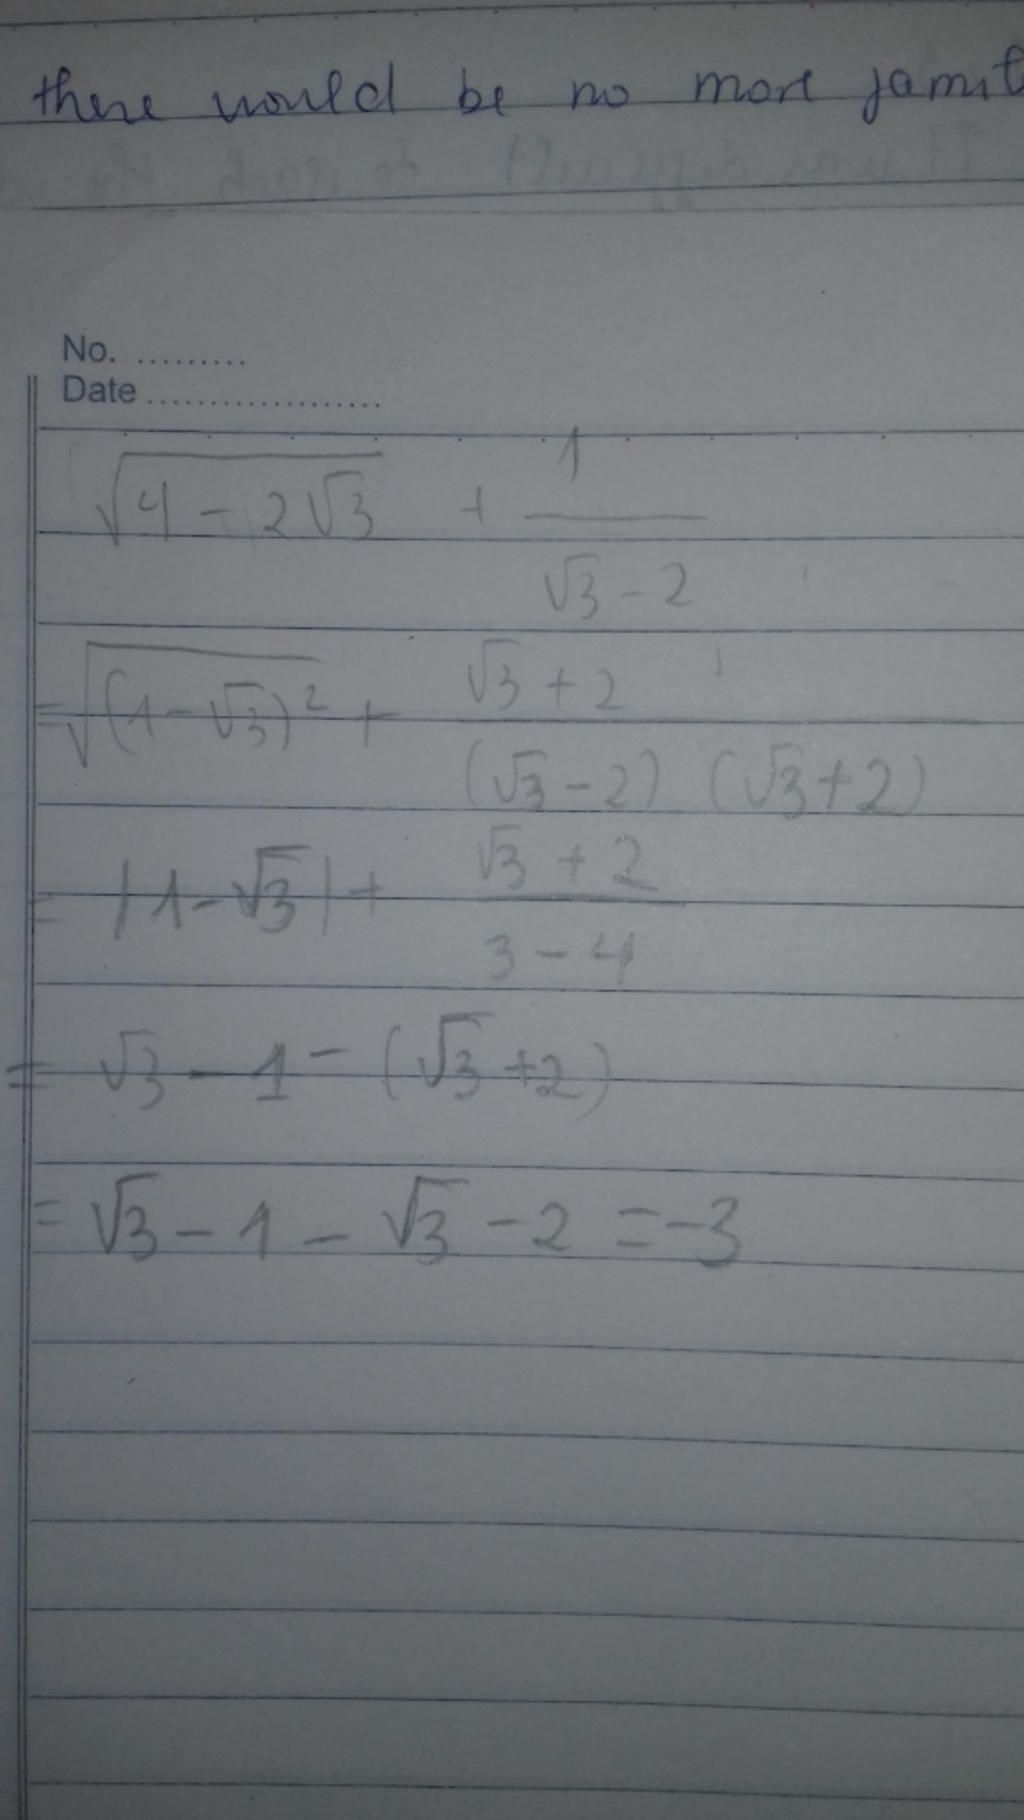 there would be no more
No. .........
Date ...................
√(4 - 2√3) + 1/(√3 - 2)
= √((1 - √3)²) + (√3 + 2)/((√3 - 2) (√3 + 2))
= |1 - √3| + (√3 + 2)/(3 - 4)
= √3 - 1 - (√3 + 2)
= √3 - 1 - √3 - 2 = -3